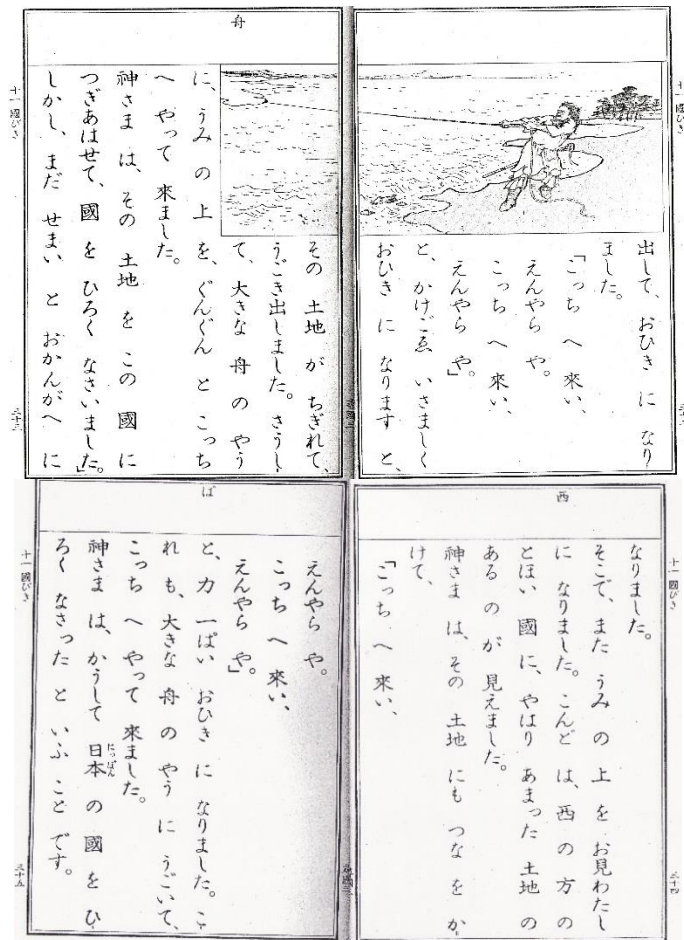 十一 國びき
出して、おひき に なり
ました。
「こっち へ 來い、
えんやら や。
こっち へ 來い、
えんやら や」
と、かけごゑ いさましく
おひき に なります と、
舟
その 土地 が ちぎれて、
うごき出しました。さうし
て、大きな 舟 の やう
に、うみ の 上 を、ぐんぐん と こっち
へ やって 來ました。
神さま は、その 土地 を この 國 に
つぎあはせて、國 を ひろく なさいました。
しかし、まだ せまい と おかんがへ に
十一 國びき
三十三
西
十一 國びき
三十四
なりました。
そこで、また うみ の 上 を お見わたし
に なりました。こんど は、西 の 方 の
とほい 國 に、やはり あまった 土地 の
ある の が 見えました。
神さま は、その 土地 に も つな を か
けて、
「こっち へ 來い、
ぱ
えんやら や。
こっち へ 來い、
えんやら や」
と、力 一ぱい おひき に なりました。こ
れ も、大きな 舟 の やう に うごいて、
こっち へ やって 來ました。
神さま は、かうして 日本 の 國 を ひ
にっぽん
ろく なさった と いふ こと です。
十一 國びき
三十五